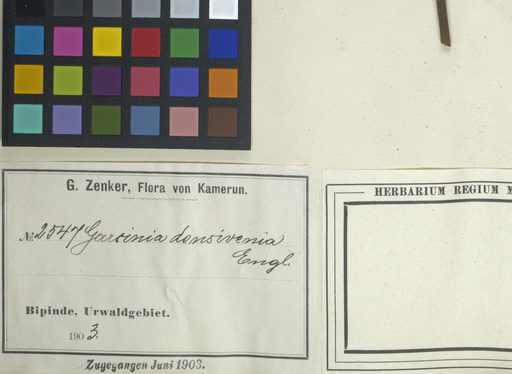 G. Zenker, Flora von Kamerun.
No. 2547 Garcinia densivenia
Engl.
Bipinde, Urwaldgebiet.
1903.
Zugegangen Juni 1903.
HERBARIUM REGIUM M